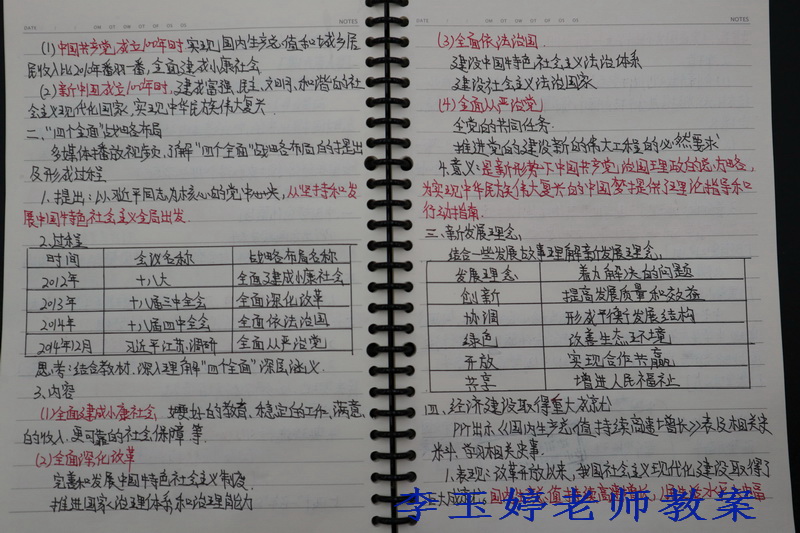 NOTES
(1)中国共产党成立100年时实现国内生产总值和城乡居
民收入比2010年翻一番,全面建成小康社会
(2)新中国成立100年时,建成富强、民主、文明、和谐的社
会主义现代化国家,实现中华民族伟大复兴
二、“四个全面”战略布局
多媒体播放视频,了解“四个全面”战略布局的提出
及形成过程
1.提出:以习近平同志为核心的党中央,从坚持和发
展中国特色社会主义全局出发.
2.过程
时间 会议名称 战略布局名称
2012年 十八大 全面建成小康社会
2013年 十八届三中全会 全面深化改革
2014年 十八届四中全会 全面依法治国
2014年12月 习近平江苏调研 全面从严治党
思考:结合教材,深入理解“四个全面”深层涵义.
3.内容
(1)全面建成小康社会 更好的教育、稳定的工作、满意
的收入、更可靠的社会保障等
(2)全面深化改革
完善和发展中国特色社会主义制度
推进国家治理体系和治理能力
NOTES
(3)全面依法治国.
建设中国特色社会主义法治体系
建设社会主义法治国家
(4)全面从严治党
全党的共同任务.
推进党的建设新的伟大工程的必然要求
4.意义:是新形势下中国共产党治国理政的总方略,
为实现中华民族伟大复兴的中国梦提供了理论指导和
行动指南.
三、新发展理念:
结合一些发展故事理解新发展理念:
发展理念 着力解决的问题
创新 提高发展质量和效益
协调 形成平衡发展结构
绿色 改善生态环境
开放 实现合作共赢
共享 增进人民福祉
四、经济建设取得重大成就
PPT出示《国内生产总值持续高速增长》表及相关资
料,学习相关史事.
1.表现:改革开放以来,我国社会主义现代化建设取得了
李玉婷老师教案